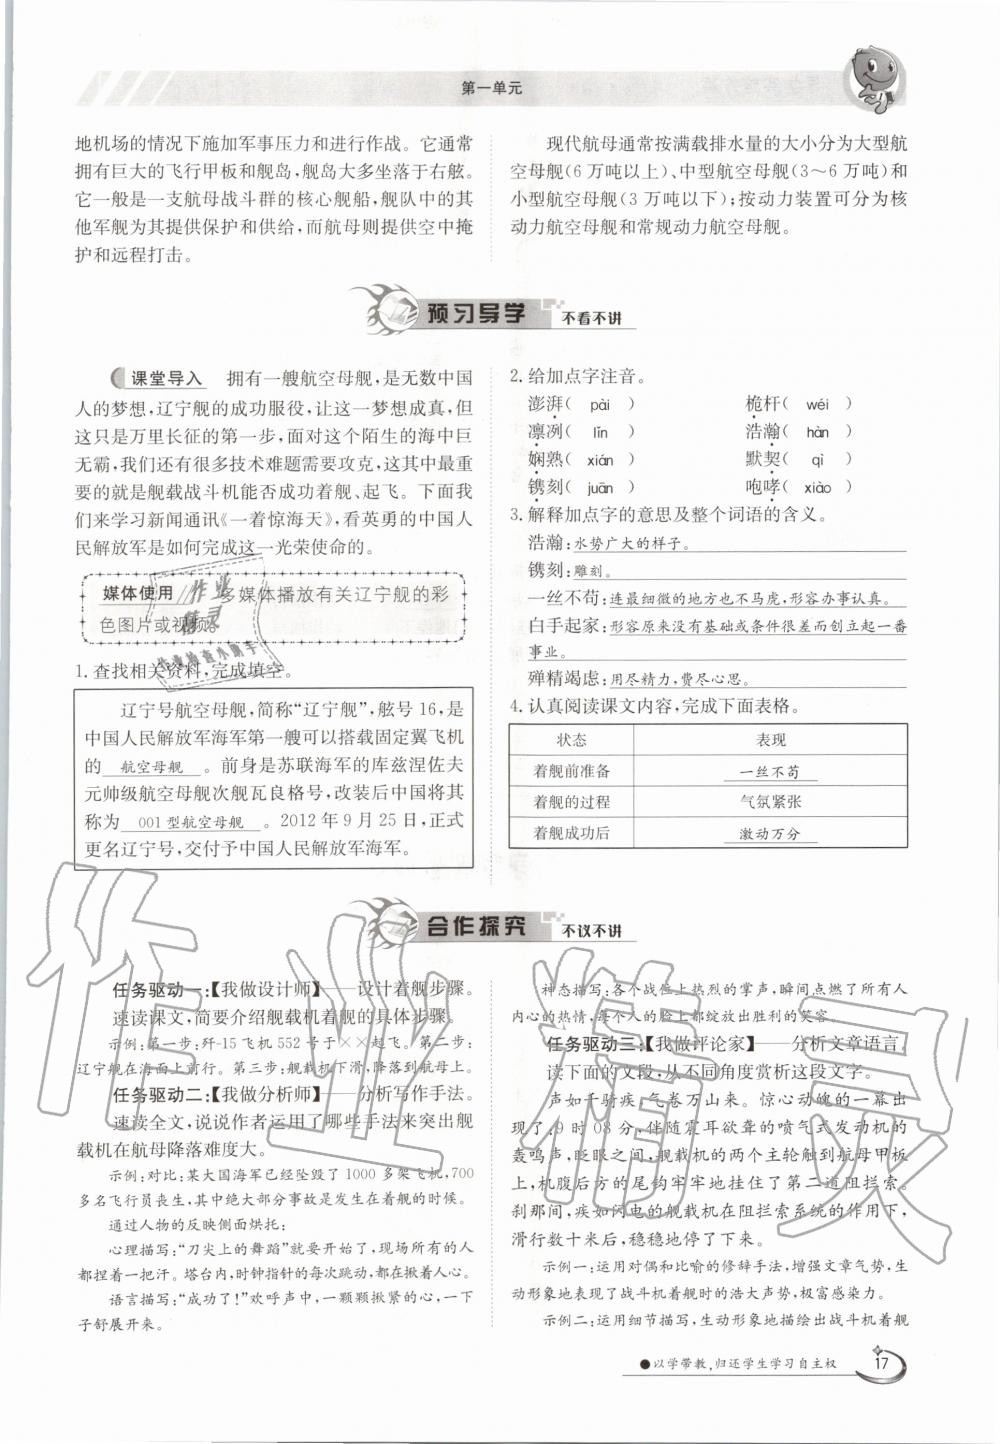 第一单元
地机场的情况下施加军事压力和进行作战。它通常
拥有巨大的飞行甲板和舰岛，舰岛大多坐落于右舷。
它一般是一支航母战斗群的核心舰船，舰队中的其
他军舰为其提供保护和供给，而航母则提供空中掩
护和远程打击。
现代航母通常按满载排水量的大小分为大型航
空母舰（6万吨以上）、中型航空母舰（3～6万吨）和
小型航空母舰（3万吨以下）；按动力装置可分为核
动力航空母舰和常规动力航空母舰。
预习导学 不看不讲
课堂导入 拥有一艘航空母舰，是无数中国
人的梦想，辽宁舰的成功服役，让这一梦想成真，但
这只是万里长征的第一步，面对这个陌生的海中巨
无霸，我们还有很多技术难题需要攻克，这其中最重
要的就是舰载战斗机能否成功着舰、起飞。下面我
们来学习新闻通讯《一着惊海天》，看英勇的中国人
民解放军是如何完成这一光荣使命的。
媒体使用 多媒体播放有关辽宁舰的彩
色图片或视频。
1. 查找相关资料，完成填空。
辽宁号航空母舰，简称“辽宁舰”，舷号16，是
中国人民解放军海军第一艘可以搭载固定翼飞机
的 航空母舰 。前身是苏联海军的库兹涅佐夫
元帅级航空母舰次舰瓦良格号，改装后中国将其
称为 001型航空母舰 。2012年9月25日，正式
更名辽宁号，交付予中国人民解放军海军。
2. 给加点字注音。
澎湃（ pài ） 桅杆（ wéi ）
凛冽（ lǐn ） 浩瀚（ hàn ）
娴熟（ xián ） 默契（ qì ）
镌刻（ juān ） 咆哮（ xiào ）
3. 解释加点字的意思及整个词语的含义。
浩瀚：水势广大的样子。
镌刻：雕刻。
一丝不苟：连最细微的地方也不马虎，形容办事认真。
白手起家：形容原来没有基础或条件很差而创立起一番
事业。
殚精竭虑：用尽精力，费尽心思。
4. 认真阅读课文内容，完成下面表格。
状态 表现
着舰前准备 一丝不苟
着舰的过程 气氛紧张
着舰成功后 激动万分
合作探究 不议不讲
任务驱动一：【我做设计师】——设计着舰步骤。
速读课文，简要介绍舰载机着舰的具体步骤。
示例：第一步：歼-15飞机552号于××起飞。第二步：
辽宁舰在海面上前行。第三步：舰载机下滑，降落到航母上。
任务驱动二：【我做分析师】——分析写作手法。
速读全文，说说作者运用了哪些手法来突出舰
载机在航母降落难度大。
示例：对比：某大国海军已经坠毁了1000多架飞机，700
多名飞行员丧生，其中绝大部分事故是发生在着舰的时候。
通过人物的反映侧面烘托：
心理描写：“刀尖上的舞蹈”就要开始了，现场所有的人
都捏着一把汗。塔台内，时钟指针的每次跳动，都在揪着人心。
语言描写：“成功了！”欢呼声中，一颗颗揪紧的心，一下
子舒展开来。
神态描写：各个战位上热烈的掌声，瞬间点燃了所有人
内心的热情，每个人的脸上都绽放出胜利的笑容。
任务驱动三：【我做评论家】——分析文章语言。
读下面的文段，从不同角度赏析这段文字。
声如千骑疾，气卷万山来。惊心动魄的一幕出
现了：9时08分，伴随震耳欲聋的喷气式发动机的
轰鸣声，眨眼之间，舰载机的两个主轮触到航母甲板
上，机腹后方的尾钩牢牢地挂住了第二道阻拦索。
刹那间，疾如闪电的舰载机在阻拦索系统的作用下，
滑行数十米后，稳稳地停了下来。
示例一：运用对偶和比喻的修辞手法，增强文章气势，生
动形象地表现了战斗机着舰时的浩大声势，极富感染力。
示例二：运用细节描写，生动形象地描绘出战斗机着舰
●以学带教，归还学生学习自主权 17
作业精灵
作业
精灵
作业检查小助手